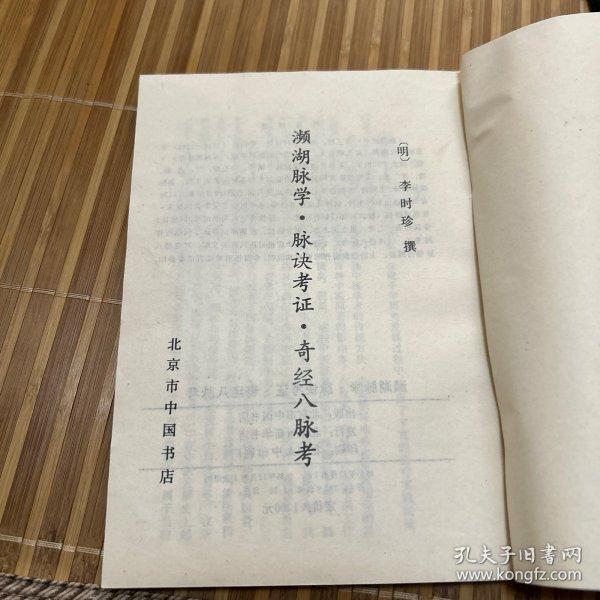 〔明〕 李时珍 撰
濒湖脉学·脉诀考证·奇经八脉考
北京市中国书店
孔夫子旧书网
www.kongfz.com